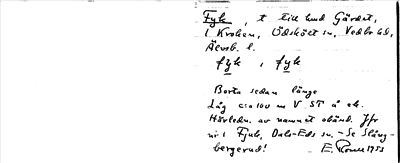 Fyk, t till hmd Gärdet,
i Kroken, Ödskölt sn, Vedbo hd,
Älvsb. l.
fyk, i fyk
Borta sedan länge
Låg c:a 100 m V ST å ek.
Härledn. av namnet obekt. Jfr
nr 1 Fjuk, Dals-Eds sn. - Se Släng-
bergerud!
E. 1953